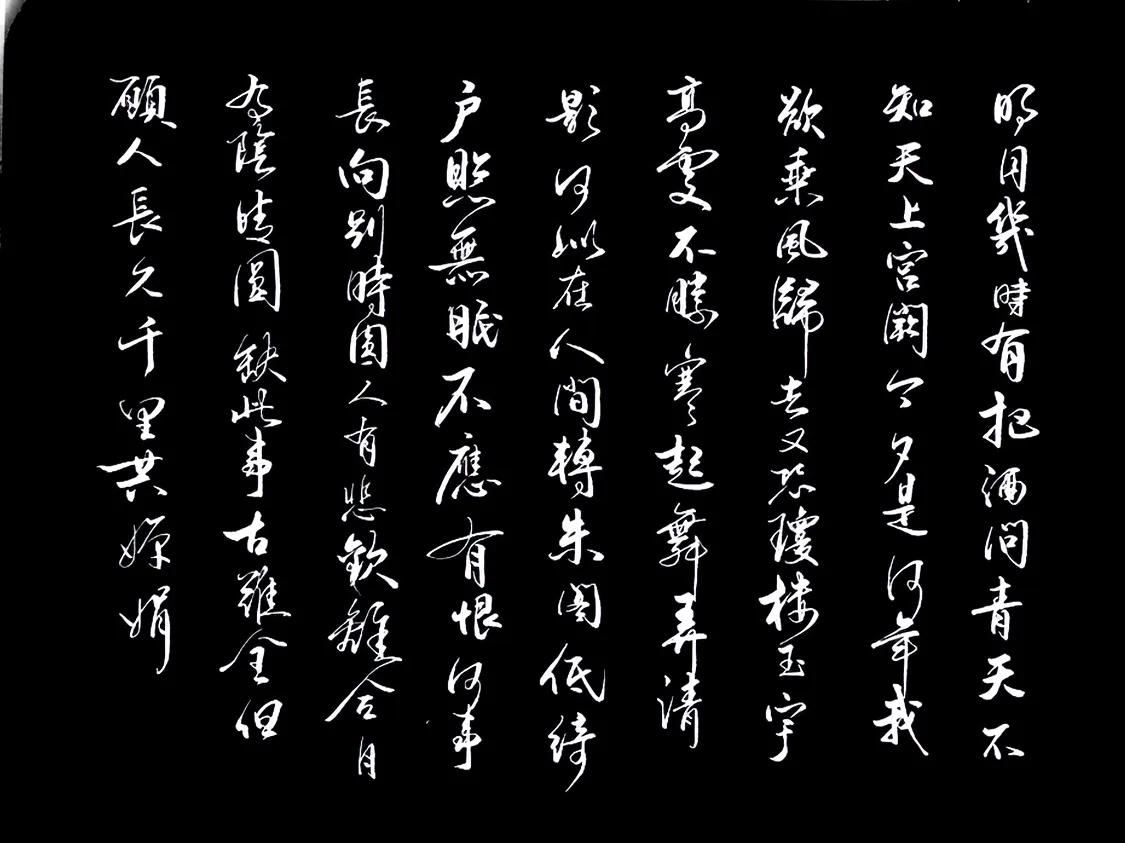 明月幾時有把酒問青天不
知天上宮闕今夕是何年我
欲乘風歸去又恐瓊樓玉宇
高處不勝寒起舞弄清
影何似在人間轉朱閣低綺
户照無眠不應有恨何事
長向別時圓人有悲歡離合月
有陰晴圓缺此事古難全但
願人長久千里共嬋娟